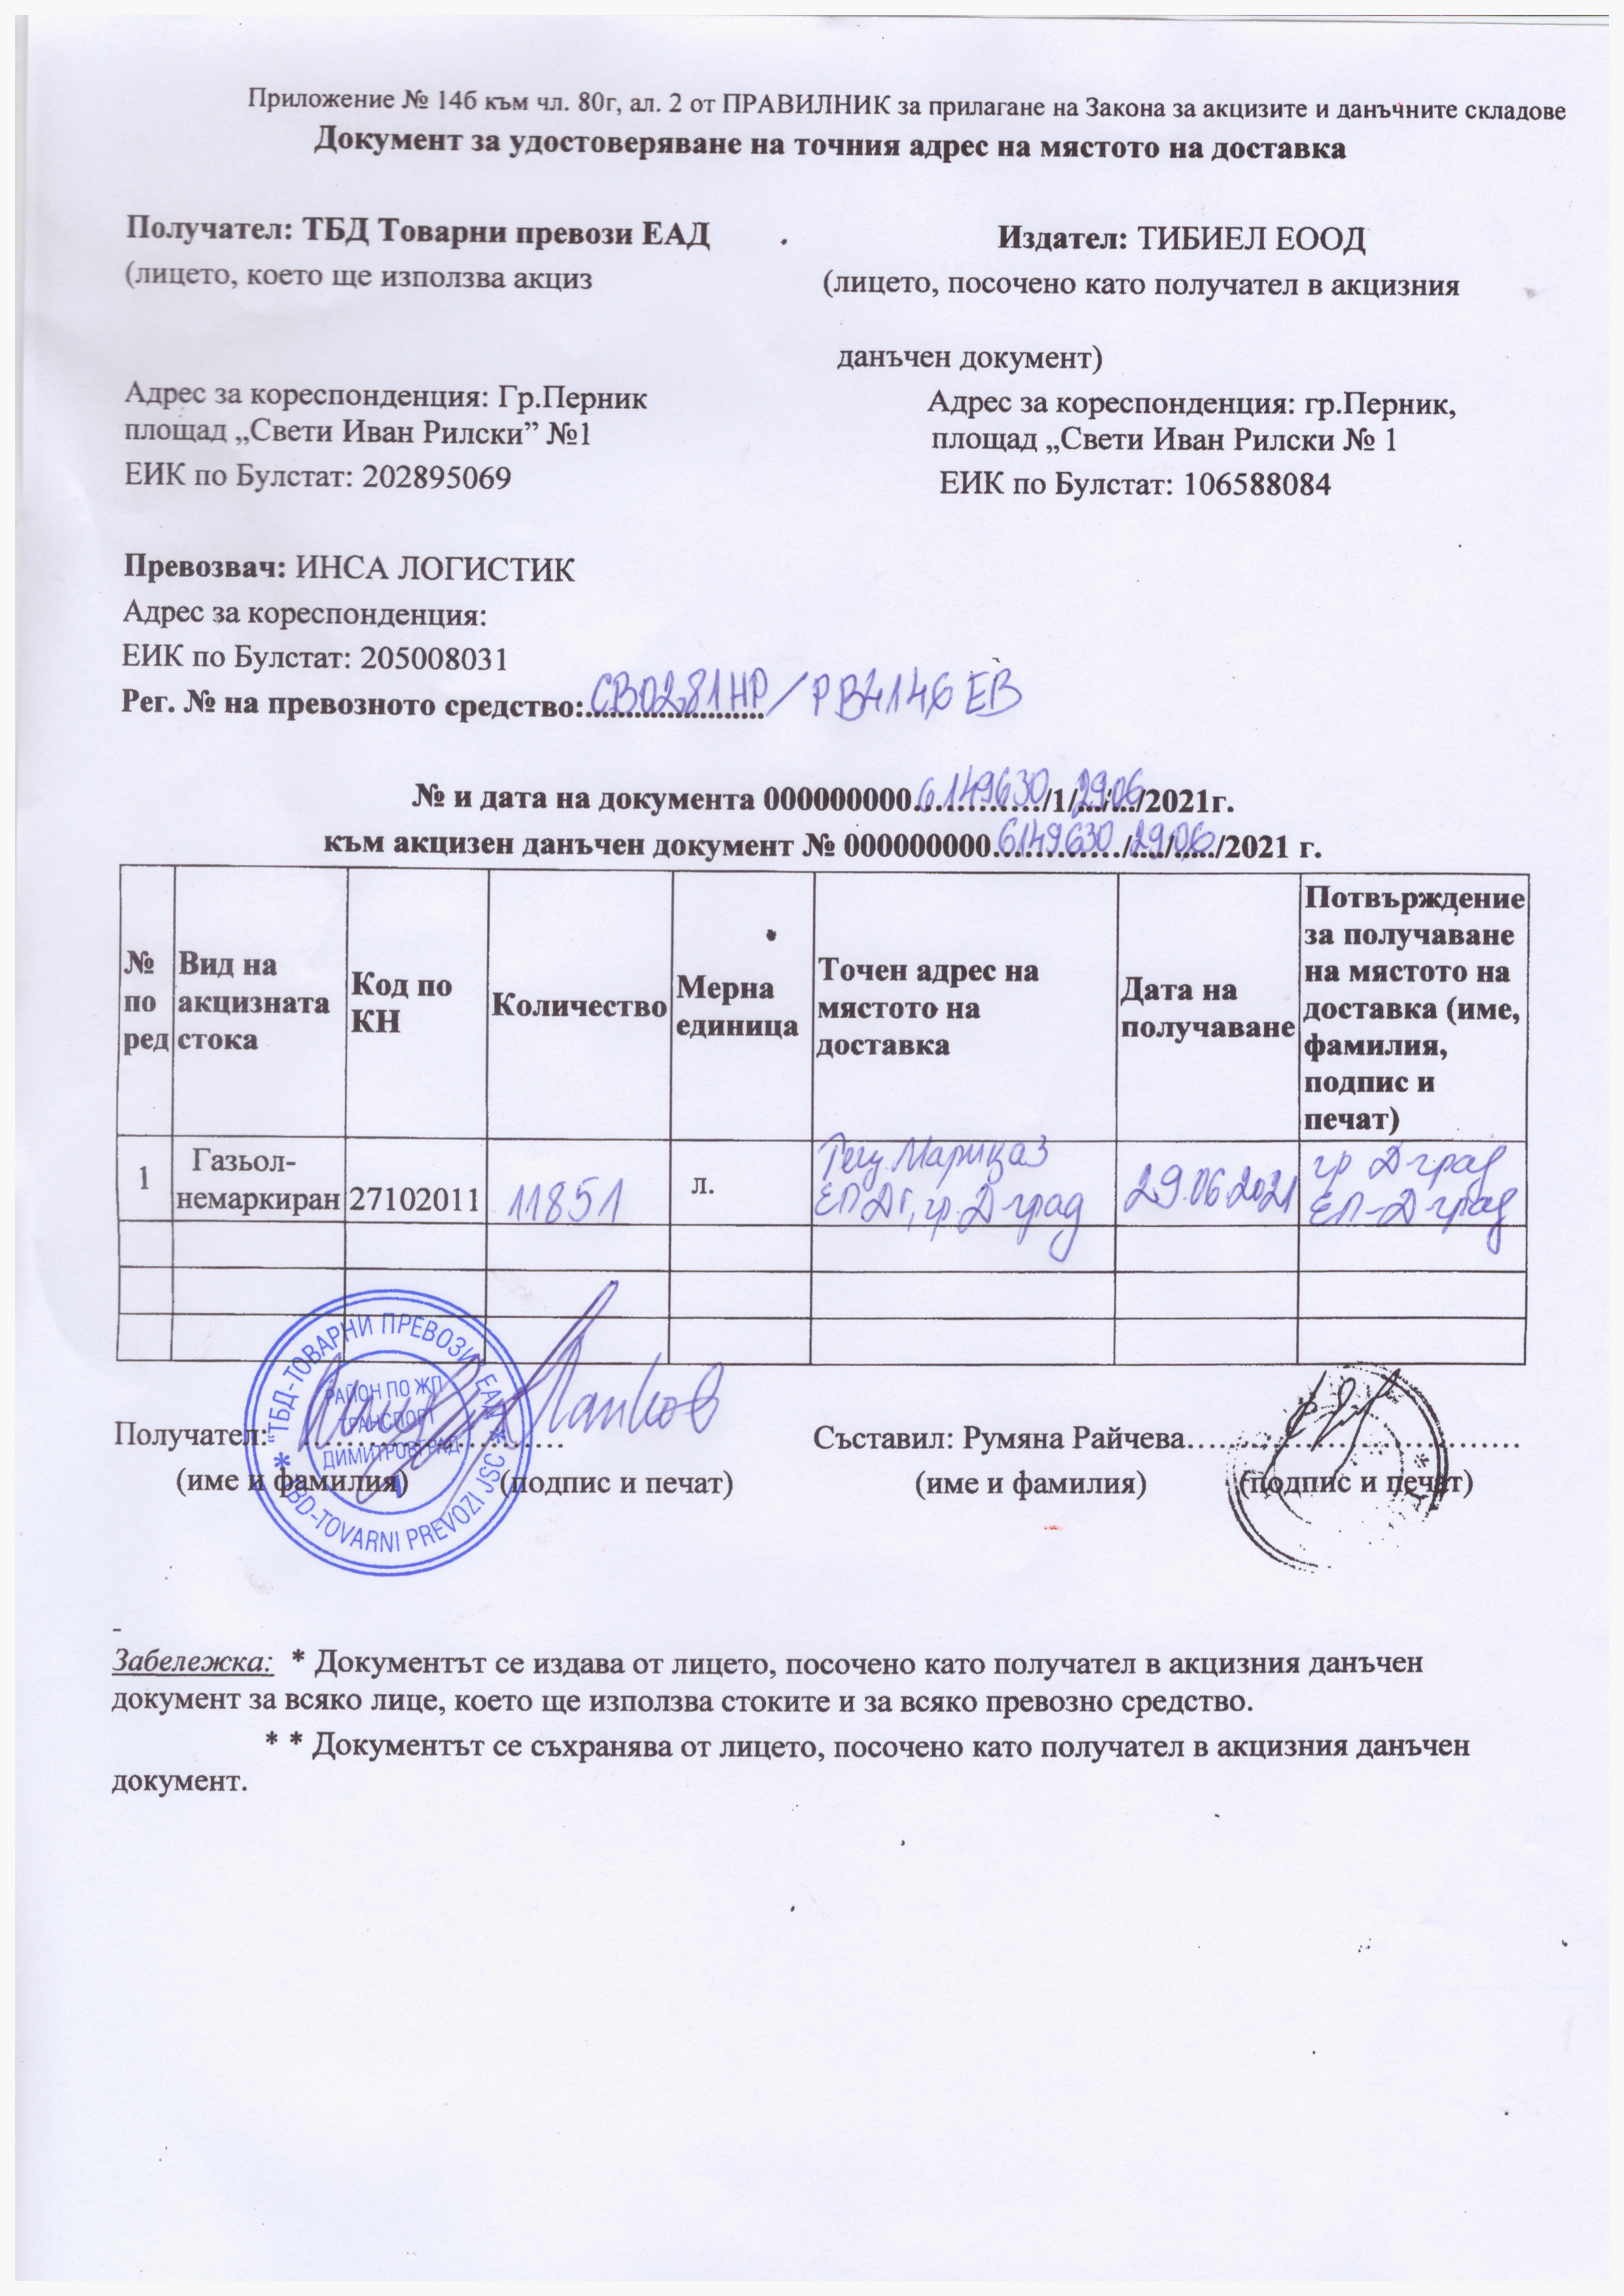 Приложение № 14б към чл. 80г, ал. 2 от ПРАВИЛНИК за прилагане на Закона за акцизите и данъчните складове
Документ за удостоверяване на точния адрес на мястото на доставка
Получател: ТБД Товарни превози ЕАД
Издател: ТИБИЕЛ ЕООД
(лицето, което ще използва акциз
(лицето, посочено като получател в акцизния
данъчен документ)
Адрес за кореспонденция: Гр.Перник
площад „Свети Иван Рилски” №1
ЕИК по Булстат: 202895069
Адрес за кореспонденция: гр.Перник,
площад „Свети Иван Рилски № 1
ЕИК по Булстат: 106588084
Превозвач: ИНСА ЛОГИСТИК
Адрес за кореспонденция:
ЕИК по Булстат: 205008031
Рег. № на превозното средство: СВ0281НР / РВ4146 ЕВ
№ и дата на документа 000000000 6149630/1/29.06/2021г.
към акцизен данъчен документ № 000000000 6149630/29.06/2021 г.
№ по ред
Вид на акцизната стока
Код по КН
Количество
Мерна единица
Точен адрес на мястото на доставка
Дата на получаване
Потвърждение за получаване на мястото на доставка (име, фамилия, подпис и печат)
1
Газьол-немаркиран
27102011
11851
л.
Марица 3
гр. Д-град
29.06.2021
гр Д-град
ЕП-Д-град
Получател: Панков
Съставил: Румяна Райчева
(име и фамилия) (подпис и печат)
(име и фамилия) (подпис и печат)
"ТБД-ТОВАРНИ ПРЕВОЗИ" ЕАД
РАЙОН ПО ЖП
ТРАНСПОРТ
ДИМИТРОВГРАД
TBD-TOVARNI PREVOZI JSC
Забележка: * Документът се издава от лицето, посочено като получател в акцизния данъчен
документ за всяко лице, което ще използва стоките и за всяко превозно средство.
* * Документът се съхранява от лицето, посочено като получател в акцизния данъчен
документ.